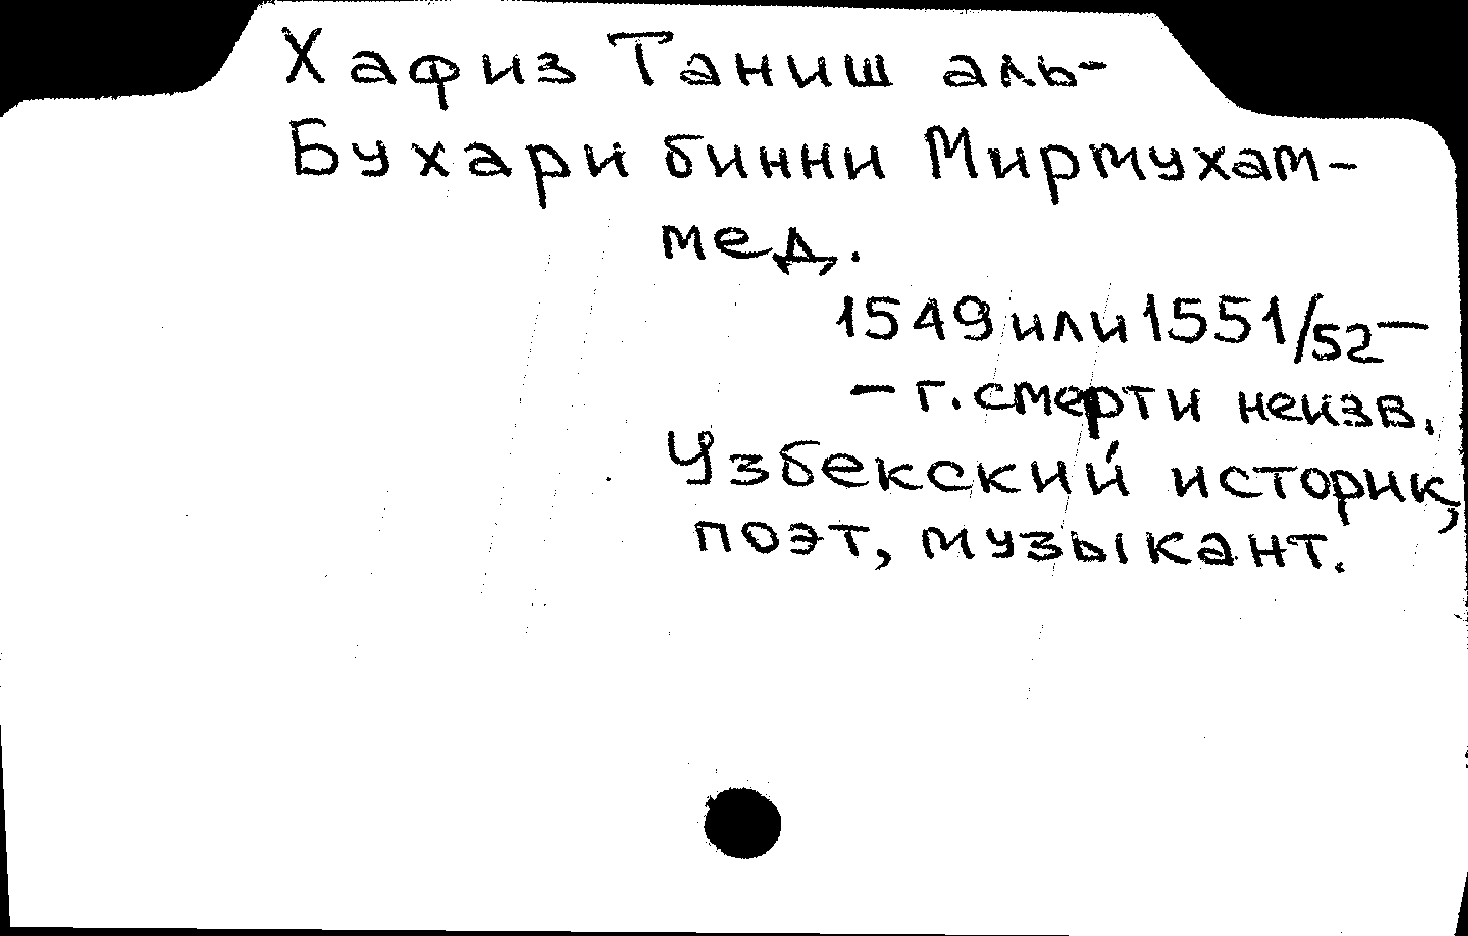 Хафиз Таниш аль-
Бухари бинни Миртухам-
мед.
1549 или 1551/52 —
— г. смерти неизв.
Узбекский историк,
поэт, музыкант.